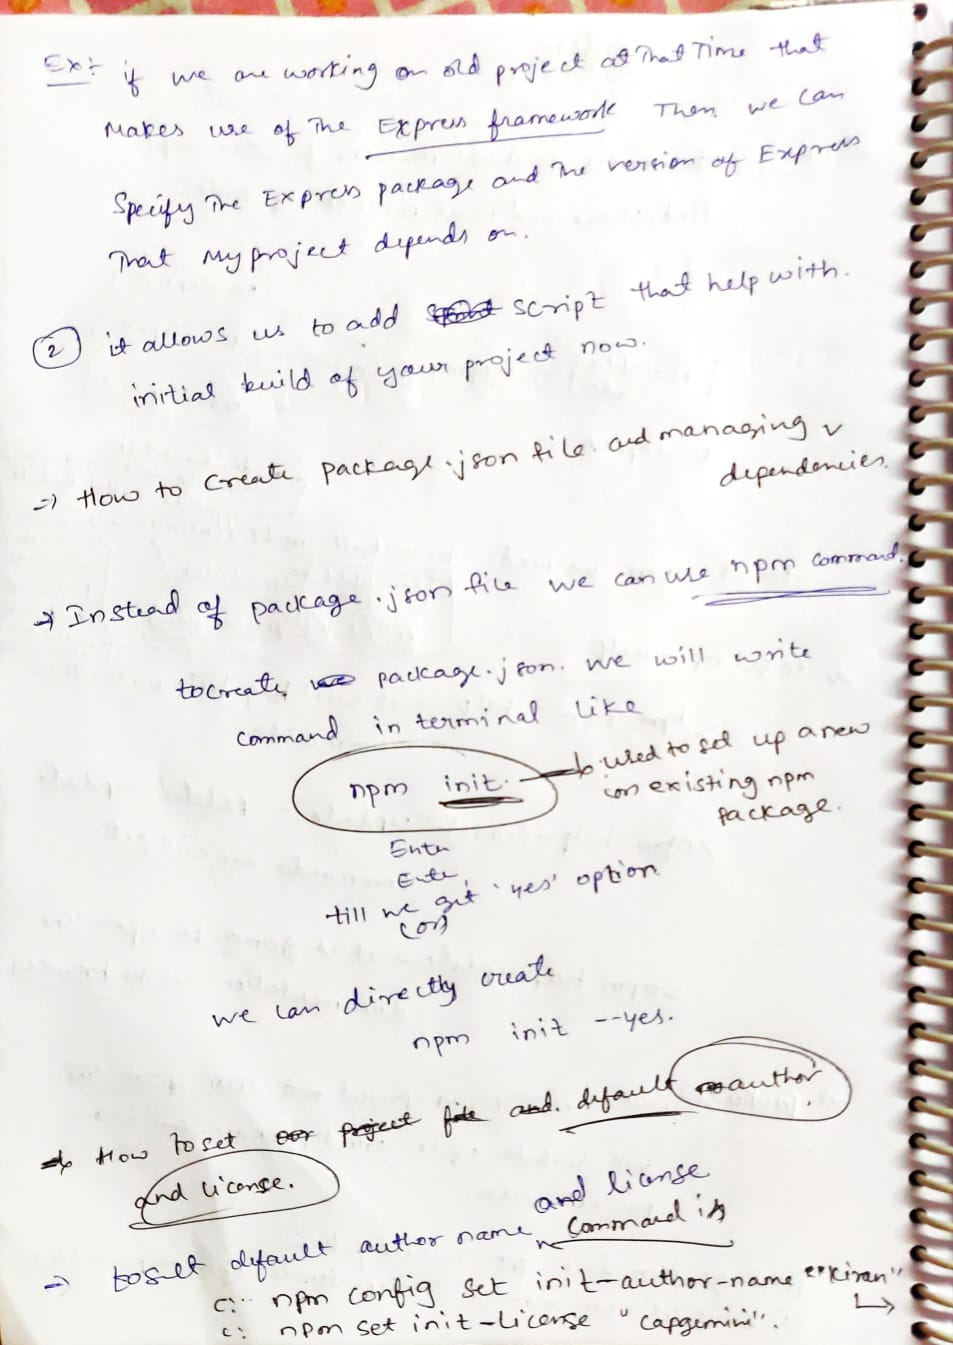 Ex:- if we are working on old project at That Time that
Makes use of The Express framework Then we can
Specify The Express package and The version of Express
That My project depends on.
② it allows us to add script that help with.
initial build of your project now.
=> How to create package.json file and managing
dependencies.
→ Instead of package.json file we can use npm command.
to create package.json. we will write
command in terminal like
npm init. → used to set up a new
(or) existing npm
package.
Enter
Enter
till we get 'yes' option
(or)
we can directly create
npm init --yes.
→ How to set our project file and. default author
and license.
and license
→ to set default author name command is
C:.. npm config set init-author-name "Kiran"
C: npm set init-license "capgemini".